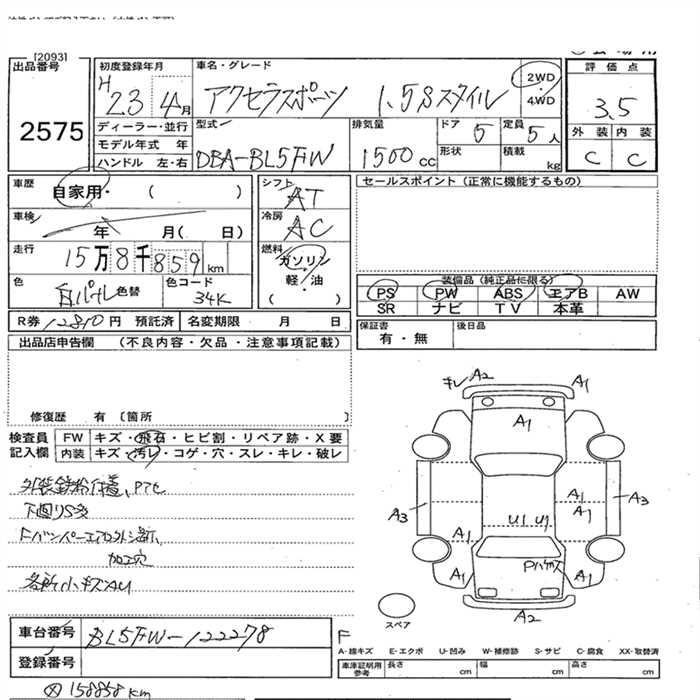 [2093]
出品番号
2575
初度登録年月
H 23 4月
車名・グレード
アクセラスポーツ 1.5Sスタイル
2WD
・
4WD
評価点
3.5
外装 内装
C C
ディーラー・並行
モデル年式 年
ハンドル 左・右
型式
DBA-BL5FW
排気量
1500 cc
ドア
5
形状
定員
5人
積載
kg
車歴
自家用・ ( )
車検
年 月( 日)
走行
15万8千859 km
色
白パール 色替
色コード
34K
シフト
AT
冷房
AC
燃料
ガソリン
・
軽・油
( )
セールスポイント (正常に機能するもの)
装備品(純正品に限る)
PS PW ABS エアB AW
SR ナビ TV 本革
R券 12810円 預託済
名変期限 月 日
保証書
有・無
後日品
出品店申告欄 (不良内容・欠品・注意事項記載)
修復歴 有 〔箇所 〕
検査員
記入欄
FW キズ・飛石・ヒビ割・リペア跡・X要
内装 キズ・汚レ・コゲ・穴・スレ・キレ・破レ
外装鉄粉付着、Pアセ
下廻りS多
Fバンパーエアロ外シ済、
加工穴
各所小キズAU
キレ A2 A1
A1
A3 A1 A3
A1
A1 U1 U1
Pハゲ大
A1 A1
A2
スペア
車台番号
BL5FW-122278
登録番号
158858 km
F
A-線キズ E-エクボ U-凹み W-補修跡 S-サビ C-腐食 XX-取替済
車庫証明用
参考
長さ cm 幅 cm 高さ cm